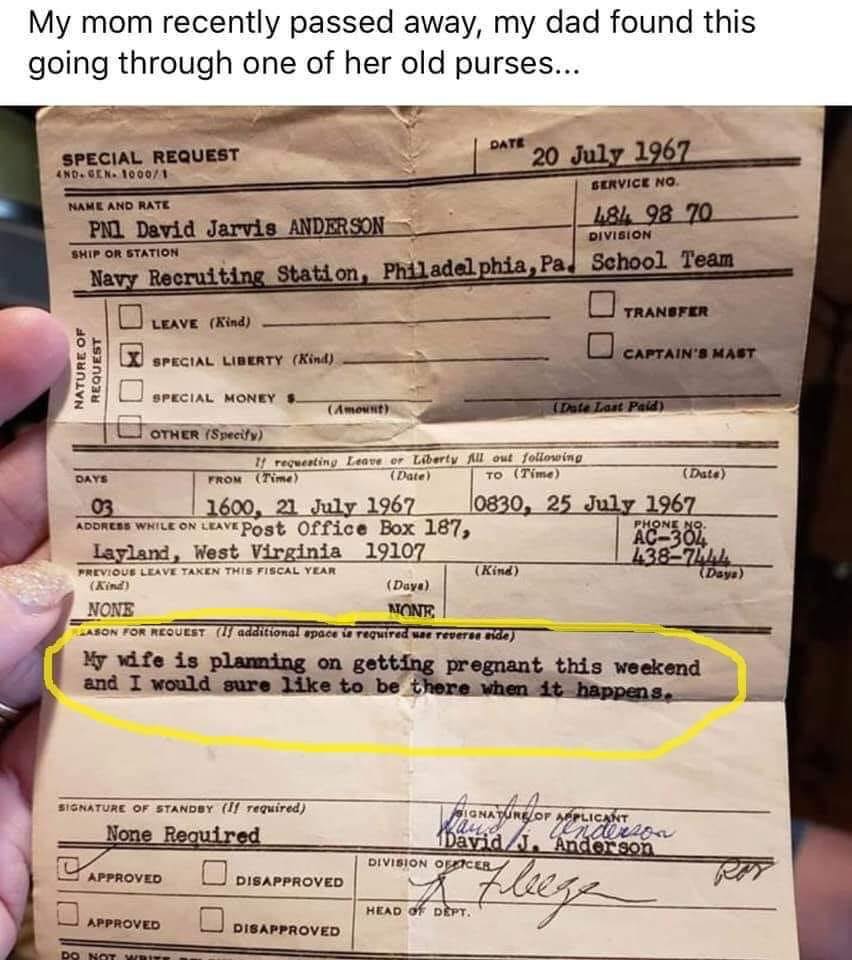 My mom recently passed away, my dad found this
going through one of her old purses...
SPECIAL REQUEST
4ND-GEN-1000/1
DATE 20 July 1967
NAME AND RATE
SERVICE NO.
PN1 David Jarvis ANDERSON
484 98 70
SHIP OR STATION
DIVISION
Navy Recruiting Station, Philadelphia, Pa. School Team
NATURE OF REQUEST
LEAVE (Kind)
TRANSFER
X SPECIAL LIBERTY (Kind)
CAPTAIN'S MAST
SPECIAL MONEY $
(Amount)
(Date Last Paid)
OTHER (Specify)
If requesting Leave or Liberty fill out following
DAYS FROM (Time) (Date) TO (Time) (Date)
03 1600, 21 July 1967 0830, 25 July 1967
ADDRESS WHILE ON LEAVE Post Office Box 187,
PHONE NO.
AC-304
Layland, West Virginia 19107
438-7444
PREVIOUS LEAVE TAKEN THIS FISCAL YEAR
(Kind) (Days) (Kind) (Days)
NONE NONE
REASON FOR REQUEST (If additional space is required use reverse side)
My wife is planning on getting pregnant this weekend
and I would sure like to be there when it happens.
SIGNATURE OF STANDBY (If required)
SIGNATURE OF APPLICANT
None Required
David J. Anderson
David J. Anderson
APPROVED DISAPPROVED
DIVISION OFFICER
APPROVED DISAPPROVED
HEAD OF DEPT.
DO NOT WRITE